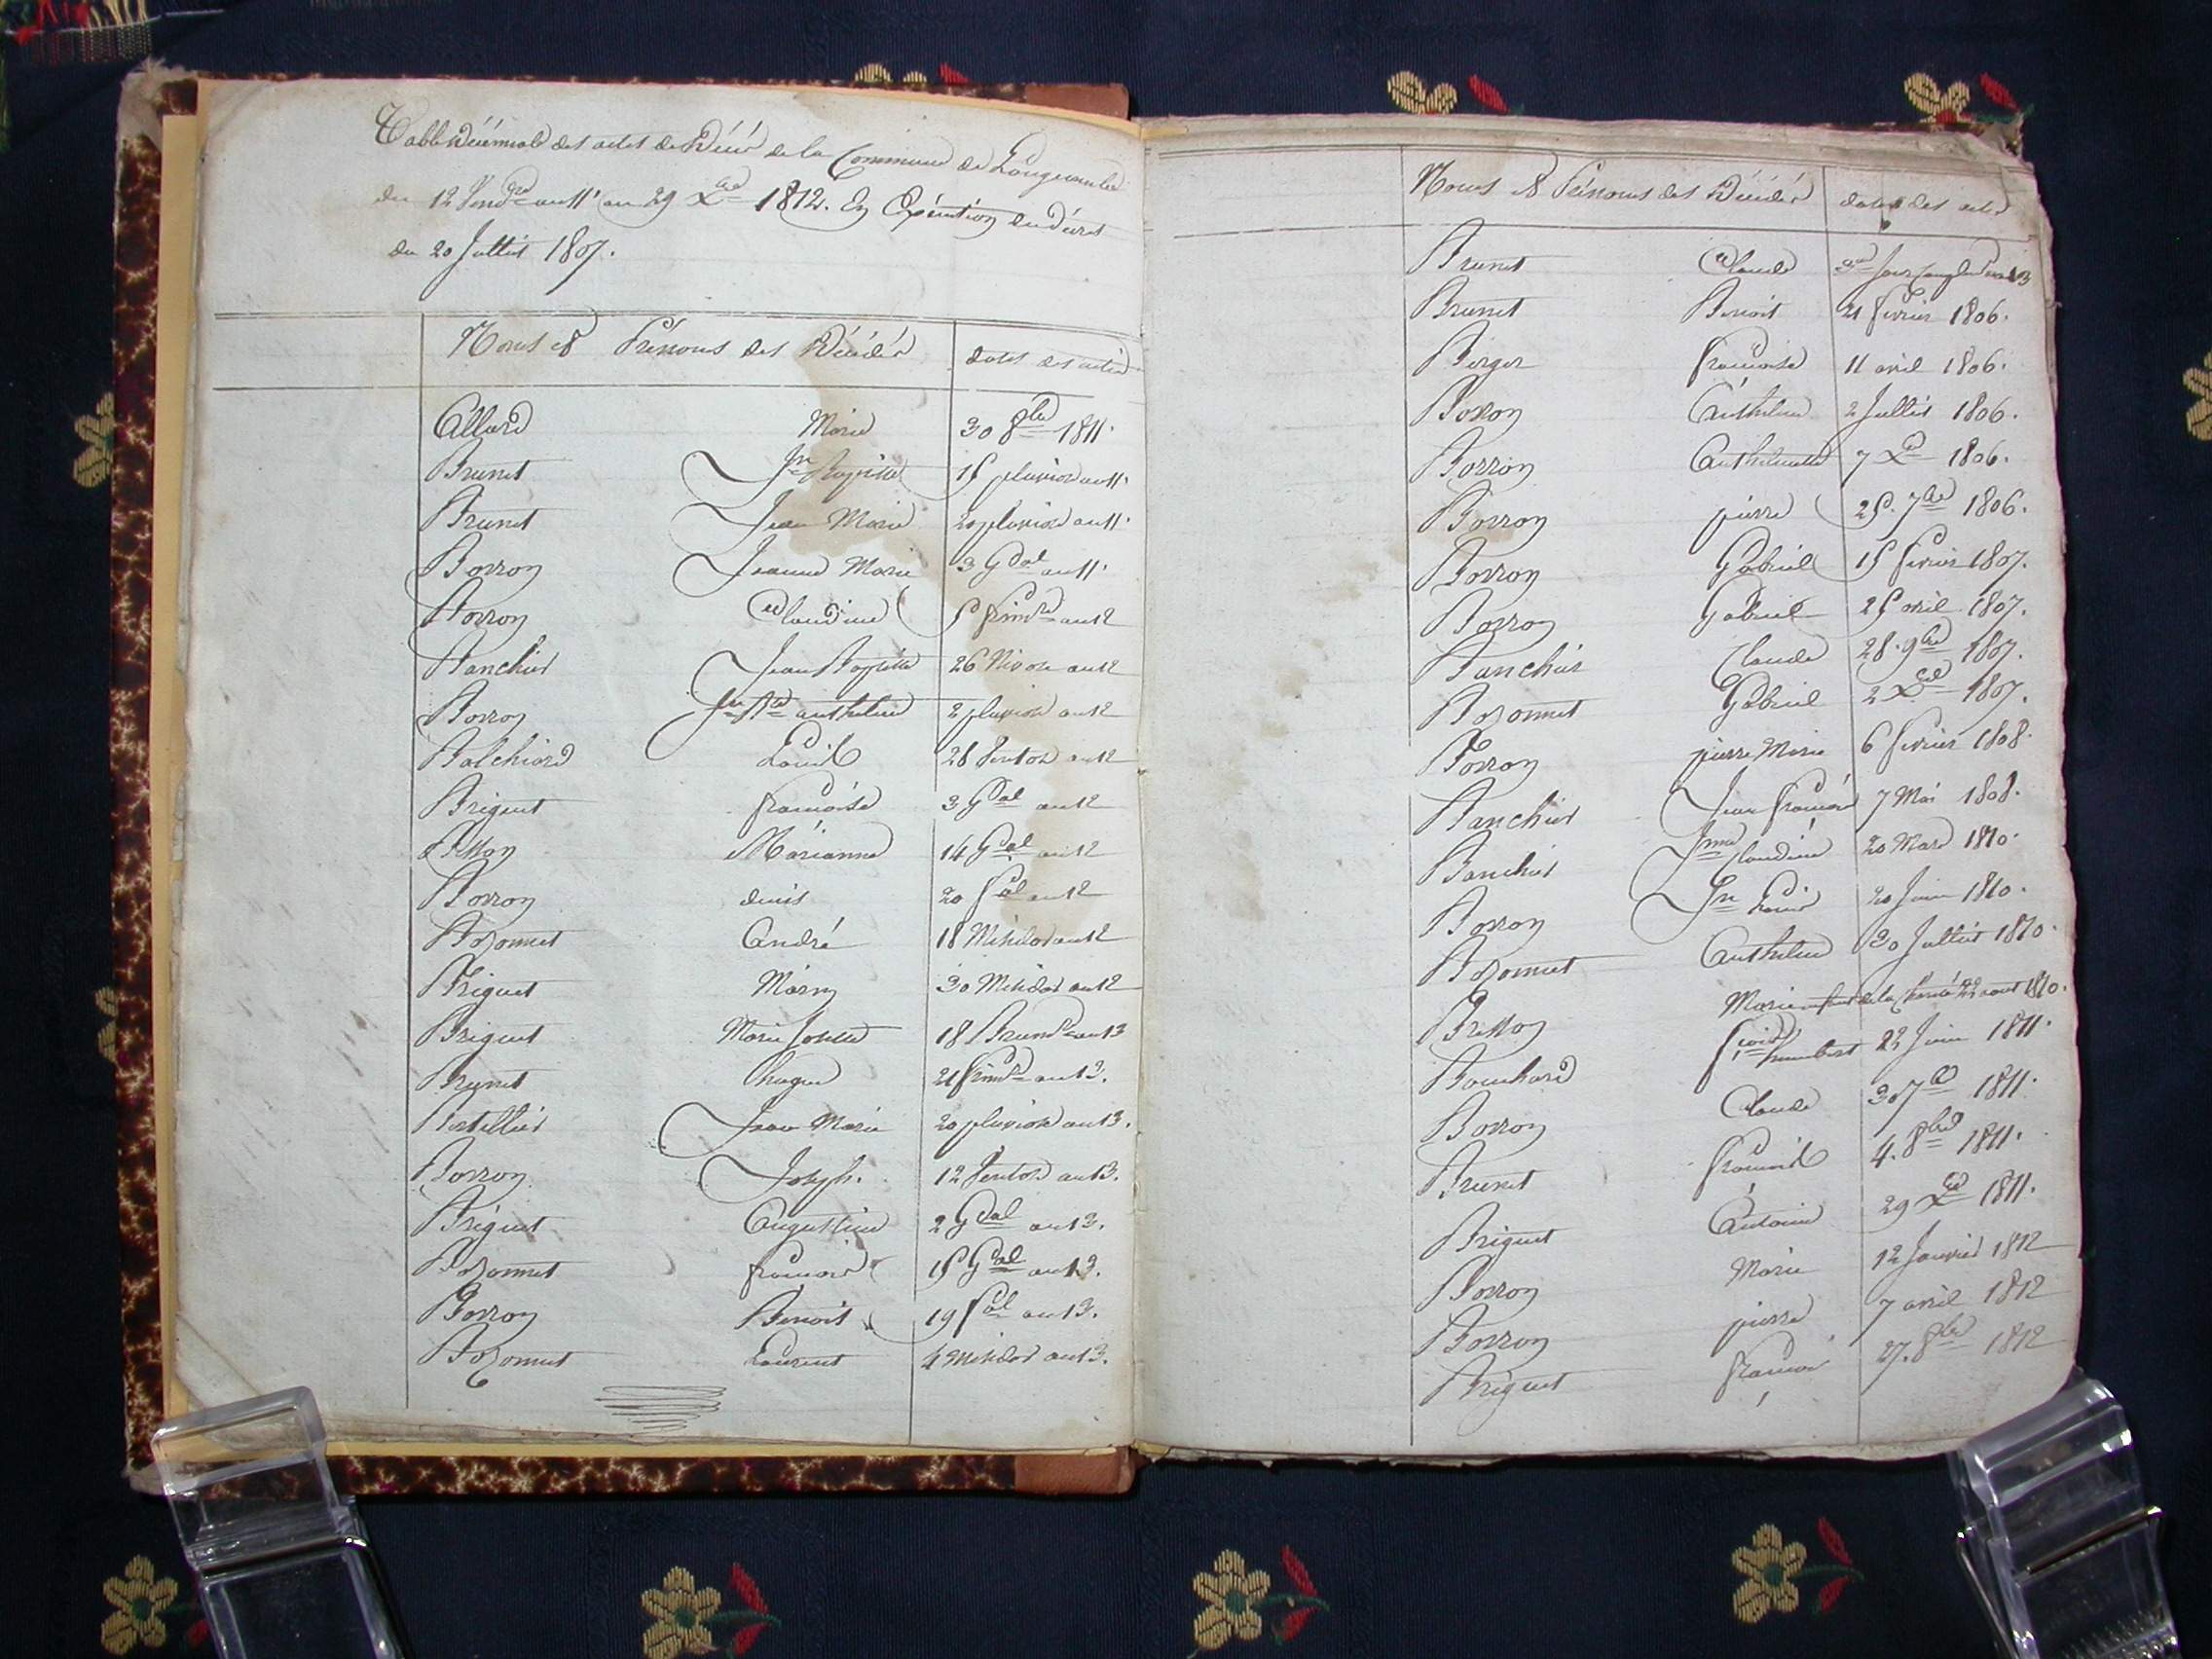 Table Décénnale des actes de Décès de la Commune de
du 12 Vend.re an 11 au 29 X.bre 1812. En Exécution du Décret
du 20 Juillet 1807.
Noms et Prénoms des Décédés dates des actes
Allard Marie 30 8.bre 1811.
Brunet Jn Baptiste 15 pluviose an 11.
Brunet Jean Marie 20 pluviose an 11.
Borron Jeanne Marie 3 G.al an 11.
Borron Claudine 5 frim.re an 12
Banchet Jean Baptiste 26 Nivose an 12
Borron Jn B.te anthelme 2 pluviose an 12
Louis 28 Ventose an 12
Briguet françoise 3 G.al an 12
Marianne 14 G.al an 12
Borron denis 20 f.al an 12
Bozonnet André 18 Messidor an 12
Briguet 30 Messidor an 12
Briguet Marie Josette 18 Brum.re an 13
Brunet hugue 21 frim.re an 13.
Jean Marie 20 pluviose an 13.
Borron Joseph. 12 Ventose an 13.
Briguet Augustine 2 G.al an 13.
Bozonnet françois 15 G.al an 13.
Borron Benoit 19 f.al an 13.
Bozonnet Laurent 4 Messidor an 13.
Noms et Prénoms des Décédés dates des actes
Brunet Claude Jour an 13
Brunet Benoit 21 février 1806.
Berger françoise 11 avril 1806.
Borron Anthelme 2 Juillet 1806.
Borron Anthelmette 7 X.bre 1806.
Borron pierre 25. 7.bre 1806.
Borron Gabriel 15 février 1807.
Borron Gabriel 25 avril 1807.
Banchet Claude 28. 9.bre 1807.
Bozonnet Gabriel 2 X.bre 1807.
Borron pierre Marie 6 février 1808.
Banchet Jean françois 7 Mai 1808.
Banchet J.nne Claudine 20 Mars 1810.
Borron Jn Louis 20 Juin 1810.
Bozonnet Anthelme 30 Juillet 1810.
Marie de la Charité 22 aout 1810.
Bouchard humbert 22 Juin 1811.
Borron Claude 30 7.bre 1811.
Brunet 4. 8.bre 1811.
Briguet Antoine 29 X.bre 1811.
Borron Marie 12 Janvier 1812
Borron pierre 7 avril 1812
Briguet françois 27. 8.bre 1812